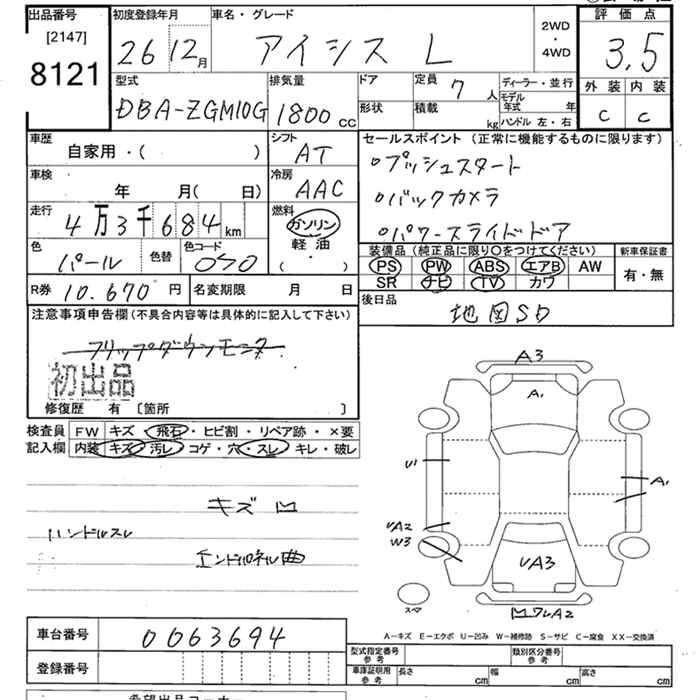 出品番号
[2147]
8121
初度登録年月
26 12月
車名・グレード
アイシス L
2WD
・
4WD
評価点
3,5
外装 内装
C C
型式
DBA-ZGM10G
排気量
1800 CC
ドア
形状
定員 7 人
積載 kg
ディーラー・並行
モデル年式 年
ハンドル 左・右
車歴
自家用・( )
シフト
AT
車検
年 月( 日)
冷房
AAC
走行
4万3千684km
燃料
ガソリン
軽油
( ・ )
色
パール
色替
色コード
070
R券 10.670 円
名変期限 月 日
セールスポイント (正常に機能するものに限ります)
○プッシュスタート
○バックカメラ
○パワースライドドア
装備品 (純正品に限り○をつけてください)
PS PW ABS エアB AW
SR ナビ TV カワ
新車保証書
有・無
後日品
地図SD
注意事項申告欄(不具合内容等は具体的に記入して下さい)
フリップダウンモニター
初出品
修復歴 有 〔箇所 〕
検査員記入欄
FW キズ・飛石・ヒビ割・リペア跡・×要
内装 キズ・汚レ・コゲ・穴・スレ・キレ・破レ
キズ凹
ハンドルスレ
エンドパネル曲
A3
A1
U1
A1
UA2
W3
UA3
スペア
凹ワレA2
A-キズ E-エクボ U-凹み W-補修跡 S-サビ C-腐食 XX-交換済
車台番号 0063694
登録番号
型式指定番号
参考
類別区分番号
参考
車庫証明用
参考
長さ cm
幅 cm
高さ cm
希望出品コーナー